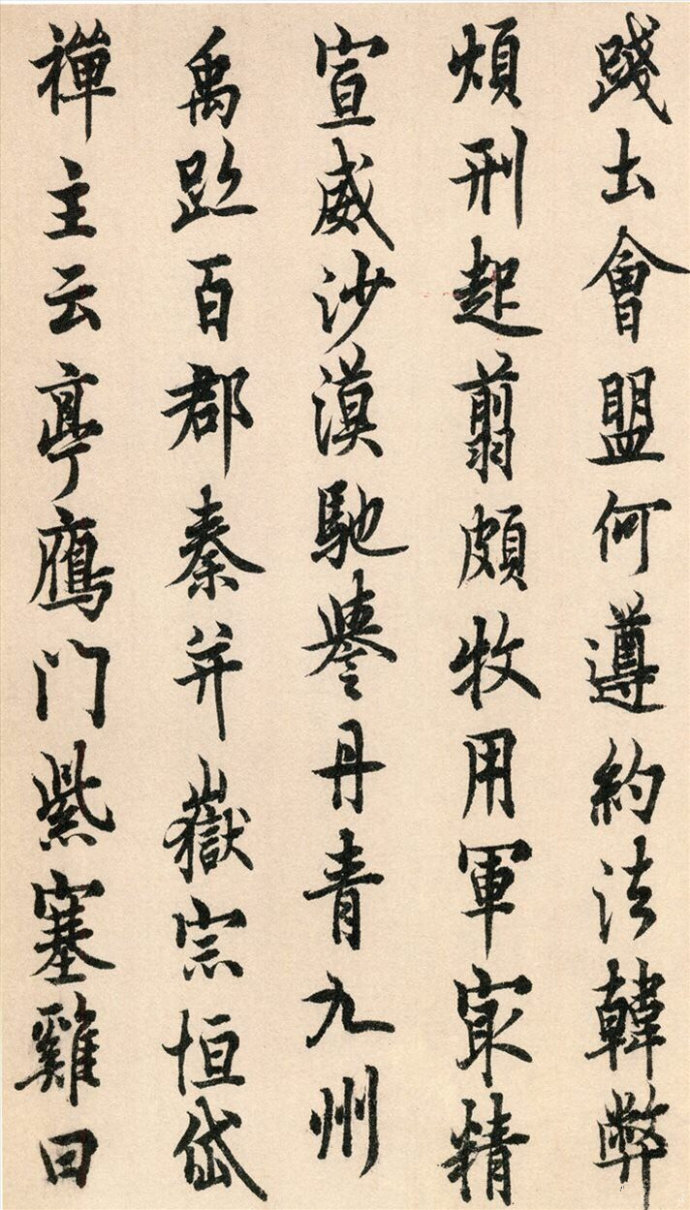 踐土會盟何遵約法韓弊
煩刑起翦頗牧用軍宼精
宣威沙漠馳譽丹青九州
禹跡百郡秦并嶽宗恒岱
禪主云亭鴈門紫塞雞田